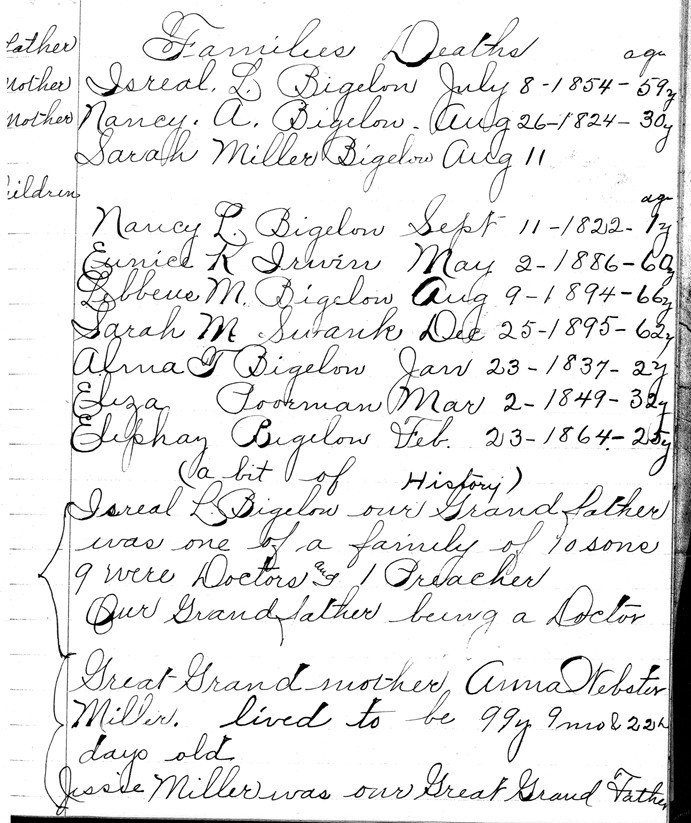 Families Deaths age
Father Isreal. L. Bigelow July 8-1854-59y
Mother Nancy. A. Bigelow. Aug 26-1824-30y
Mother Sarah Miller Bigelow Aug 11
Children age
Nancy L. Bigelow Sept 11-1822-1y
Eunice K Irwin May 2-1886-60y
Libbeus M. Bigelow Aug 9-1894-66y
Sarah M Swank Dec 25-1895-62y
Alma T Bigelow Jan 23-1837-2y
Eliza Poorman Mar 2-1849-32y
Eliphaz Bigelow Feb. 23-1864-25y
(a bit of History)
Isreal L Bigelow our Grandfather
was one of a family of 10 sons
9 were Doctors and 1 Preacher
Our Grandfather being a Doctor
Great Grandmother Anna Webster
Miller. lived to be 99y 9mo & 22
days old
Jissie Miller was our Great Grand Father